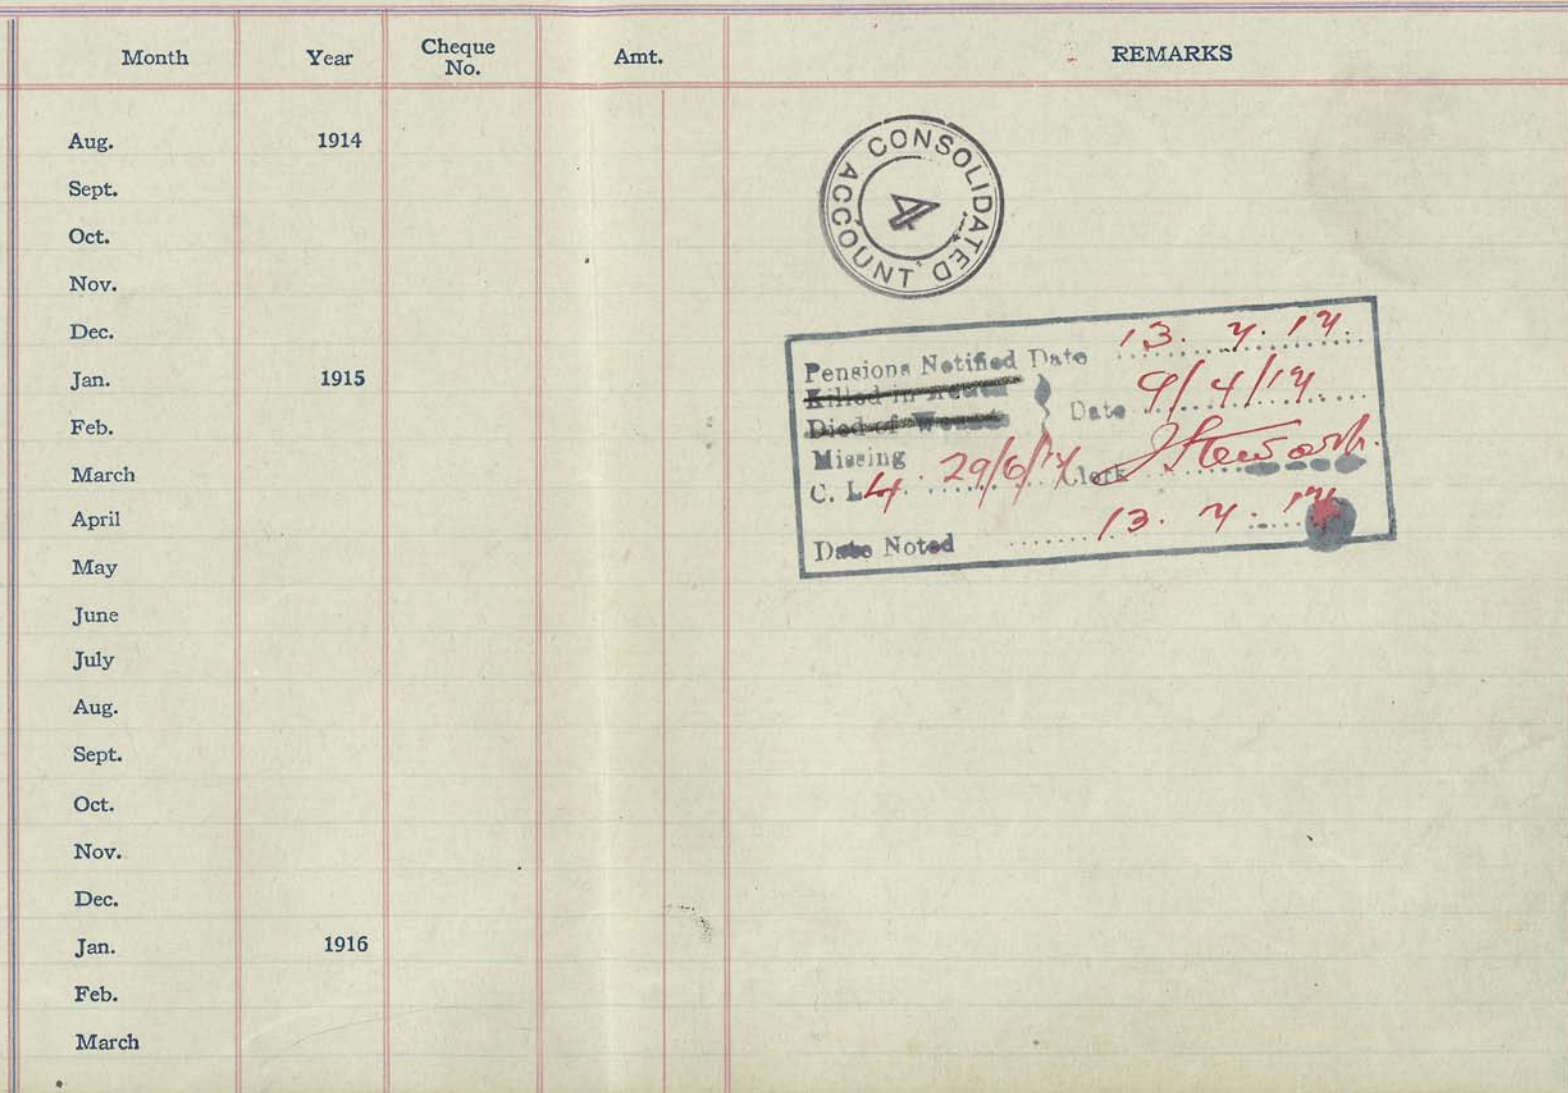 Month Year Cheque No. Amt. REMARKS
Aug. 1914
Sept.
Oct.
Nov.
Dec.
Jan. 1915
Feb.
March
April
May
June
July
Aug.
Sept.
Oct.
Nov.
Dec.
Jan. 1916
Feb.
March
CONSOLIDATED ACCOUNT
4
Pensions Notified Date 13. 7. 17.
Killed in Action
Died of Date 9/4/17
Missing
C. L. 4. 29/6/17 Clerk
Date Noted 13. 7. 17